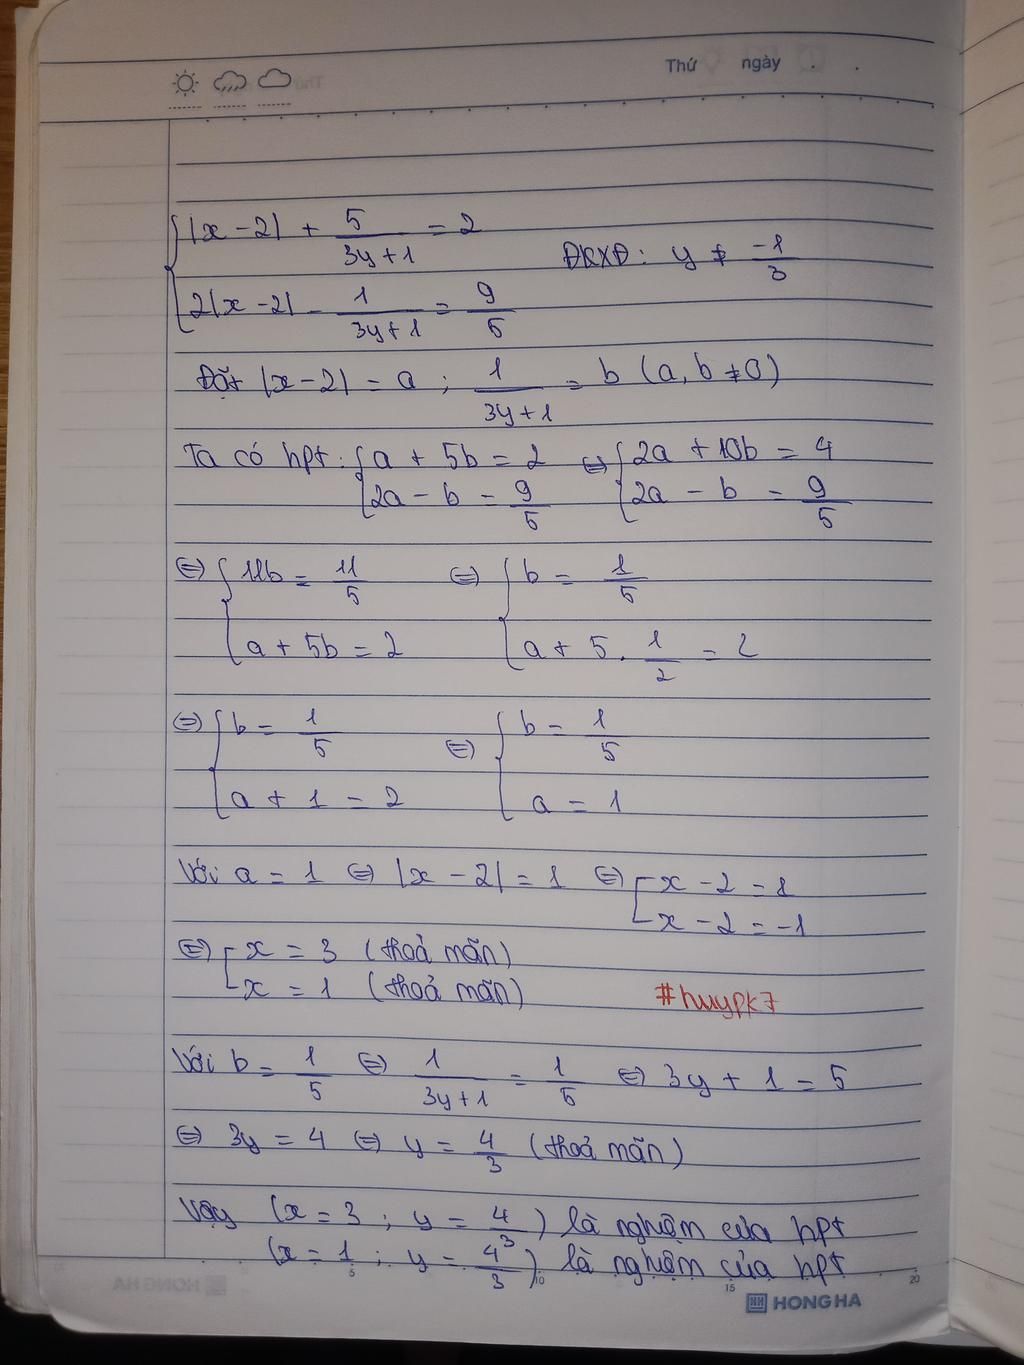 Thứ ngày
{|x - 2| + 5/(3y + 1) = 2 ĐKXĐ: y ≠ -1/3
{2|x - 2| - 1/(3y + 1) = 9/5
Đặt |x - 2| = a ; 1/(3y + 1) = b (a, b ≠ 0)
Ta có hpt: {a + 5b = 2 ⇔ {2a + 10b = 4
{2a - b = 9/5 {2a - b = 9/5
⇔ {11b = 11/5 ⇔ {b = 1/5
{a + 5b = 2 {a + 5 . 1/2 = 2
⇔ {b = 1/5 ⇔ {b = 1/5
{a + 1 = 2 {a = 1
Với a = 1 ⇔ |x - 2| = 1 ⇔ [x - 2 = 1
[x - 2 = -1
⇔ [x = 3 (thoả mãn)
[x = 1 (thoả mãn)
#huypk7
Với b = 1/5 ⇔ 1/(3y + 1) = 1/5 ⇔ 3y + 1 = 5
⇔ 3y = 4 ⇔ y = 4/3 (thoả mãn)
Vậy (x = 3 ; y = 4/3) là nghiệm của hpt
(x = 1 ; y = 4/3) là nghiệm của hpt
5 10 15 20
HONG HA